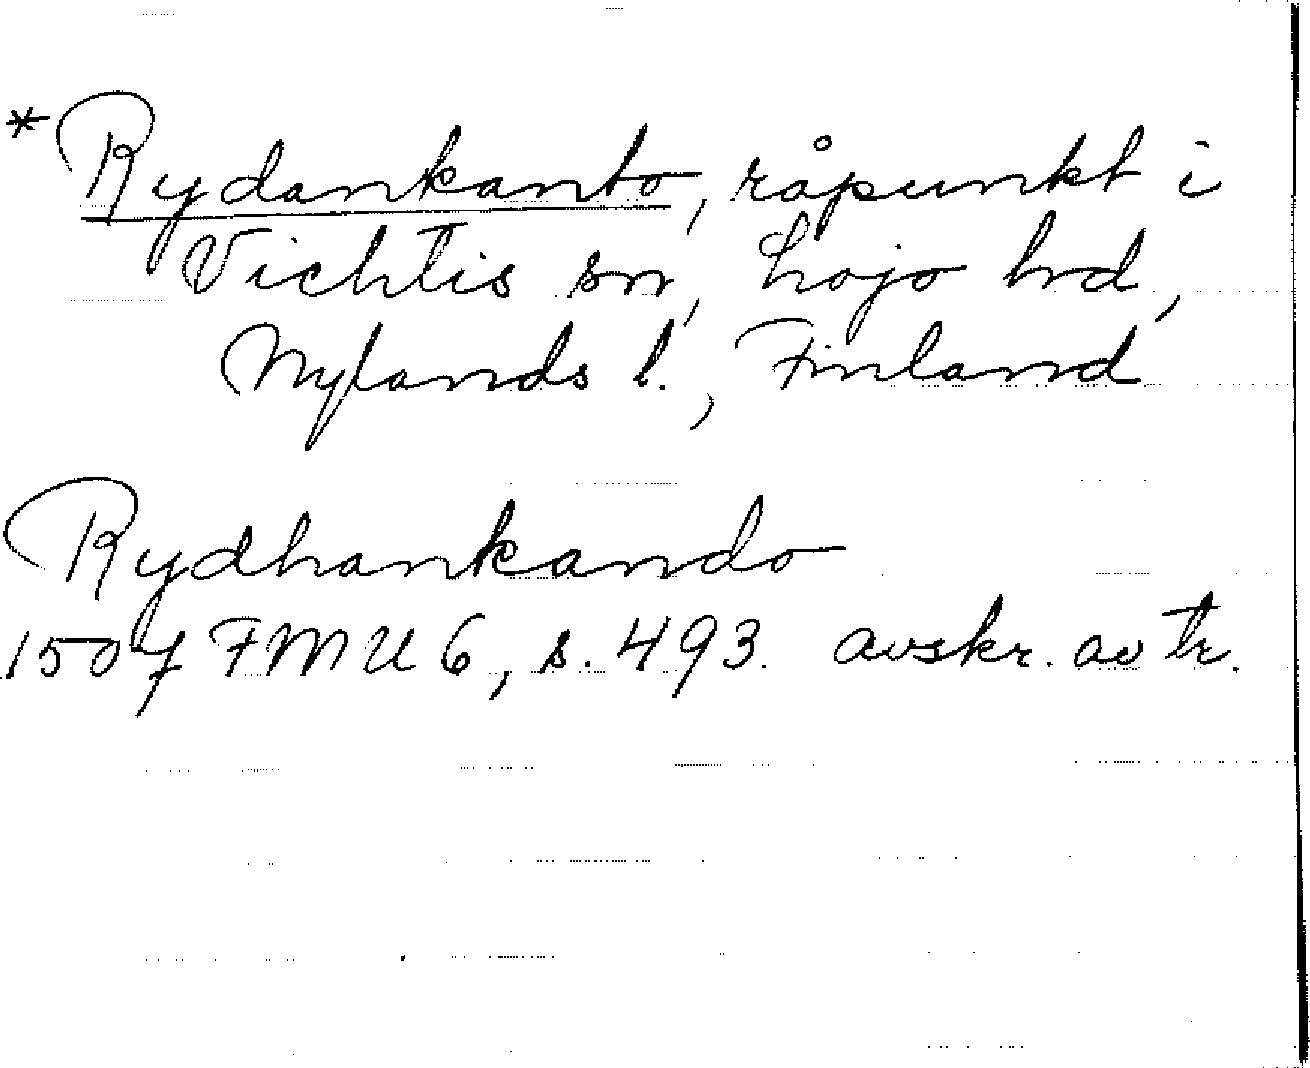 *Rydankanto, råpunkt i
Vichtis sn, Lojo hd,
Nylands l., Finland
Rydhankando
1507 FMU 6, s. 493. avskr. av tr.